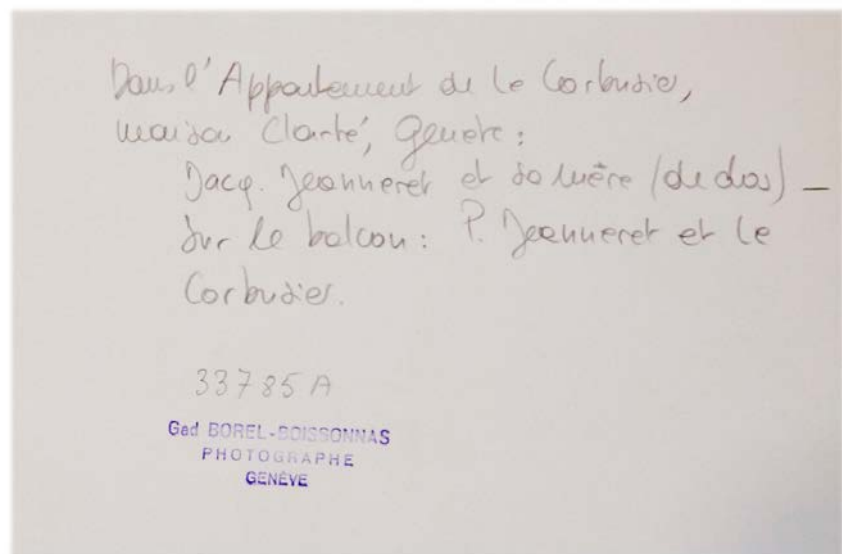 Dans l'Appartement de Le Corbusier,
maison Clarté, Genève:
Jacq. Jeanneret et sa mère (de dos) –
sur le balcon: P. Jeanneret et Le
Corbusier.
33785 A
Gad BOREL-BOISSONNAS
PHOTOGRAPHE
GENÈVE